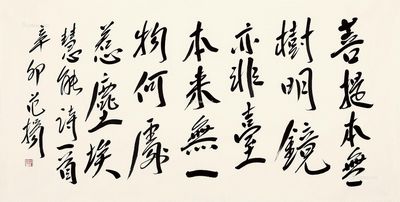 菩提本無
樹明鏡
亦非臺
本来無一
物何處
惹塵埃
慧能詩一首
辛卯范揚